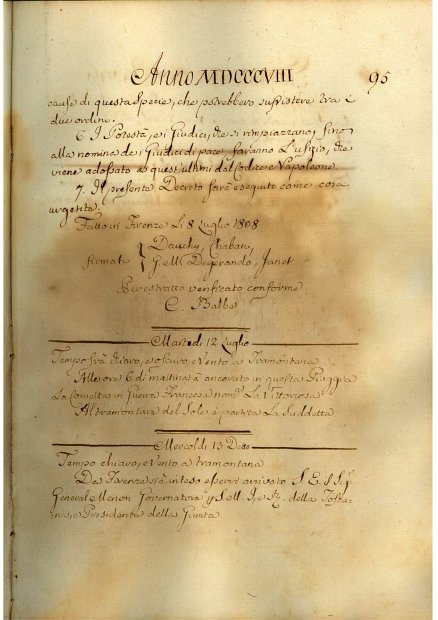 Anno MDCCCVIII 95
cause di questa specie, che potrebbero sussistere tra i
due ordini.
6. I Potestà, e i Giudici, che si rimpiazzano, fino
alla nomina dei Giudici di pace faranno l'ufizio, che
viene adossato a quest'ultimi dal Codice Napoleone
7. Il presente Decreto sarà eseguito come cosa
urgente.
Fatto in Firenze li 8 Luglio 1808
Dauchy, Chaban,
firmati Gell Degerando, Janet
Per estratto verificato conforme
C. Balbo
Martedi 12 Luglio
Tempo frà chiaro, e oscuro, e vento a Tramontana
Alle ore 6 di mattina à ancorato in questa Piaggia
La Corvetta in guerra Francese nom. La Vittoriosa
Al tramontare del Sole è partita La Suddetta
Mercoldi 13 Detto
Tempo chiaro, e vento a tramontana
Da Firenze si è inteso esservi arrivato S. E. Il S.
General Menou Governatore della Tosca-
na, e Presidente della Giunta